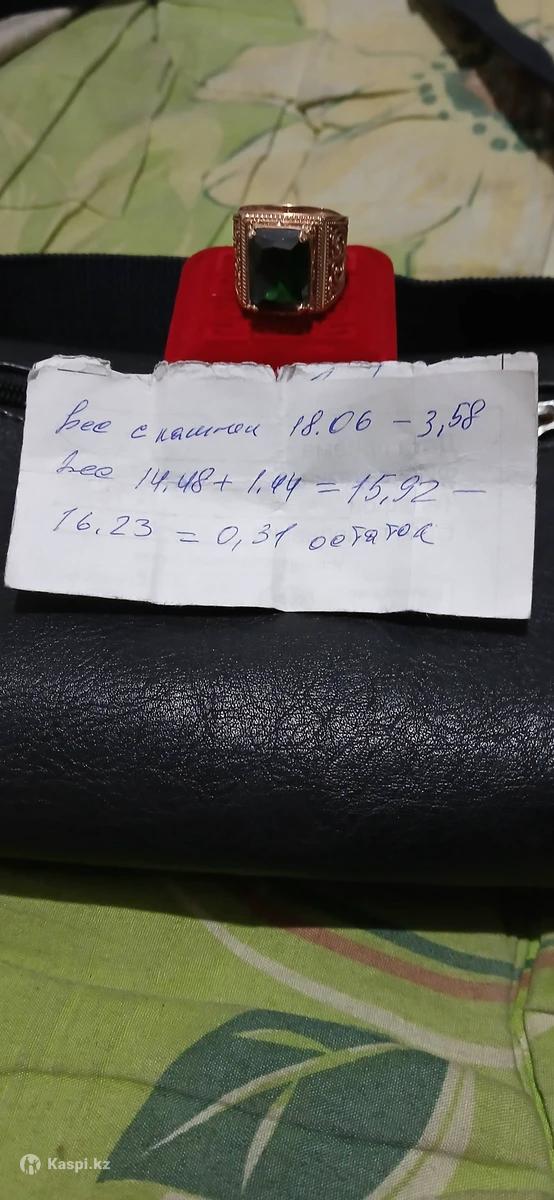 Вес с камнем 18.06 – 3,58
Вес 14.48 + 1.44 = 15,92 –
16.23 = 0,31 остаток
Kaspi.kz